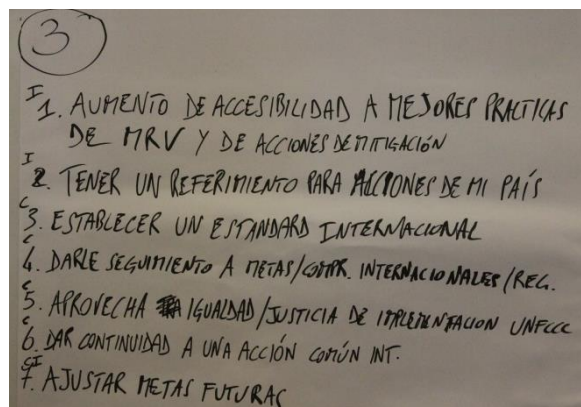 3
I
1. AUMENTO DE ACCESIBILIDAD A MEJORES PRACTICAS
DE MRV Y DE ACCIONES DE MITIGACIÓN
I
2. TENER UN REFERIMIENTO PARA ACCIONES DE MI PAÍS
C
3. ESTABLECER UN ESTANDARD INTERNACIONAL
C
4. DARLE SEGUIMIENTO A METAS/COMPR. INTERNACIONALES/REG.
C
5. APROVECHA IGUALDAD/JUSTICIA DE IMPLEMENTACION UNFCCC
C
6. DAR CONTINUIDAD A UNA ACCIÓN COMÚN INT.
CI
7. AJUSTAR METAS FUTURAS